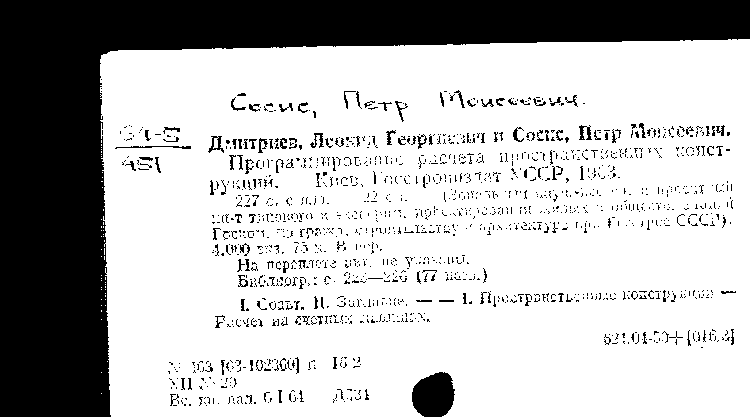 Сосис, Петр Моисеевич.
Дмитриев, Леонид Георгиевич и Сосис, Петр Моисеевич.
Программирование расчета пространственных конст-
рукций. Киев, Госстройиздат УССР, 1963.
227 с. с илл. 22 см.
ин-т типового и эксперим. проектирования жилых и обществ. зданий
Госком. по гражд. строительству и архитектуре при Госстрое СССР).
4.000 экз. 75 к. В пер.
На переплете авт. не указаны.
Библиогр.: с. 223—226 (77 назв.)
I. Соавт. II. Заглавие. — — 1. Пространственные конструкции —
Расчет на счетных машинах.
624.04-50+[016.3]
№ 163 [63-102360] п 16 2
УП № 20
Вс. кн. пал. 6 I 64 Д531